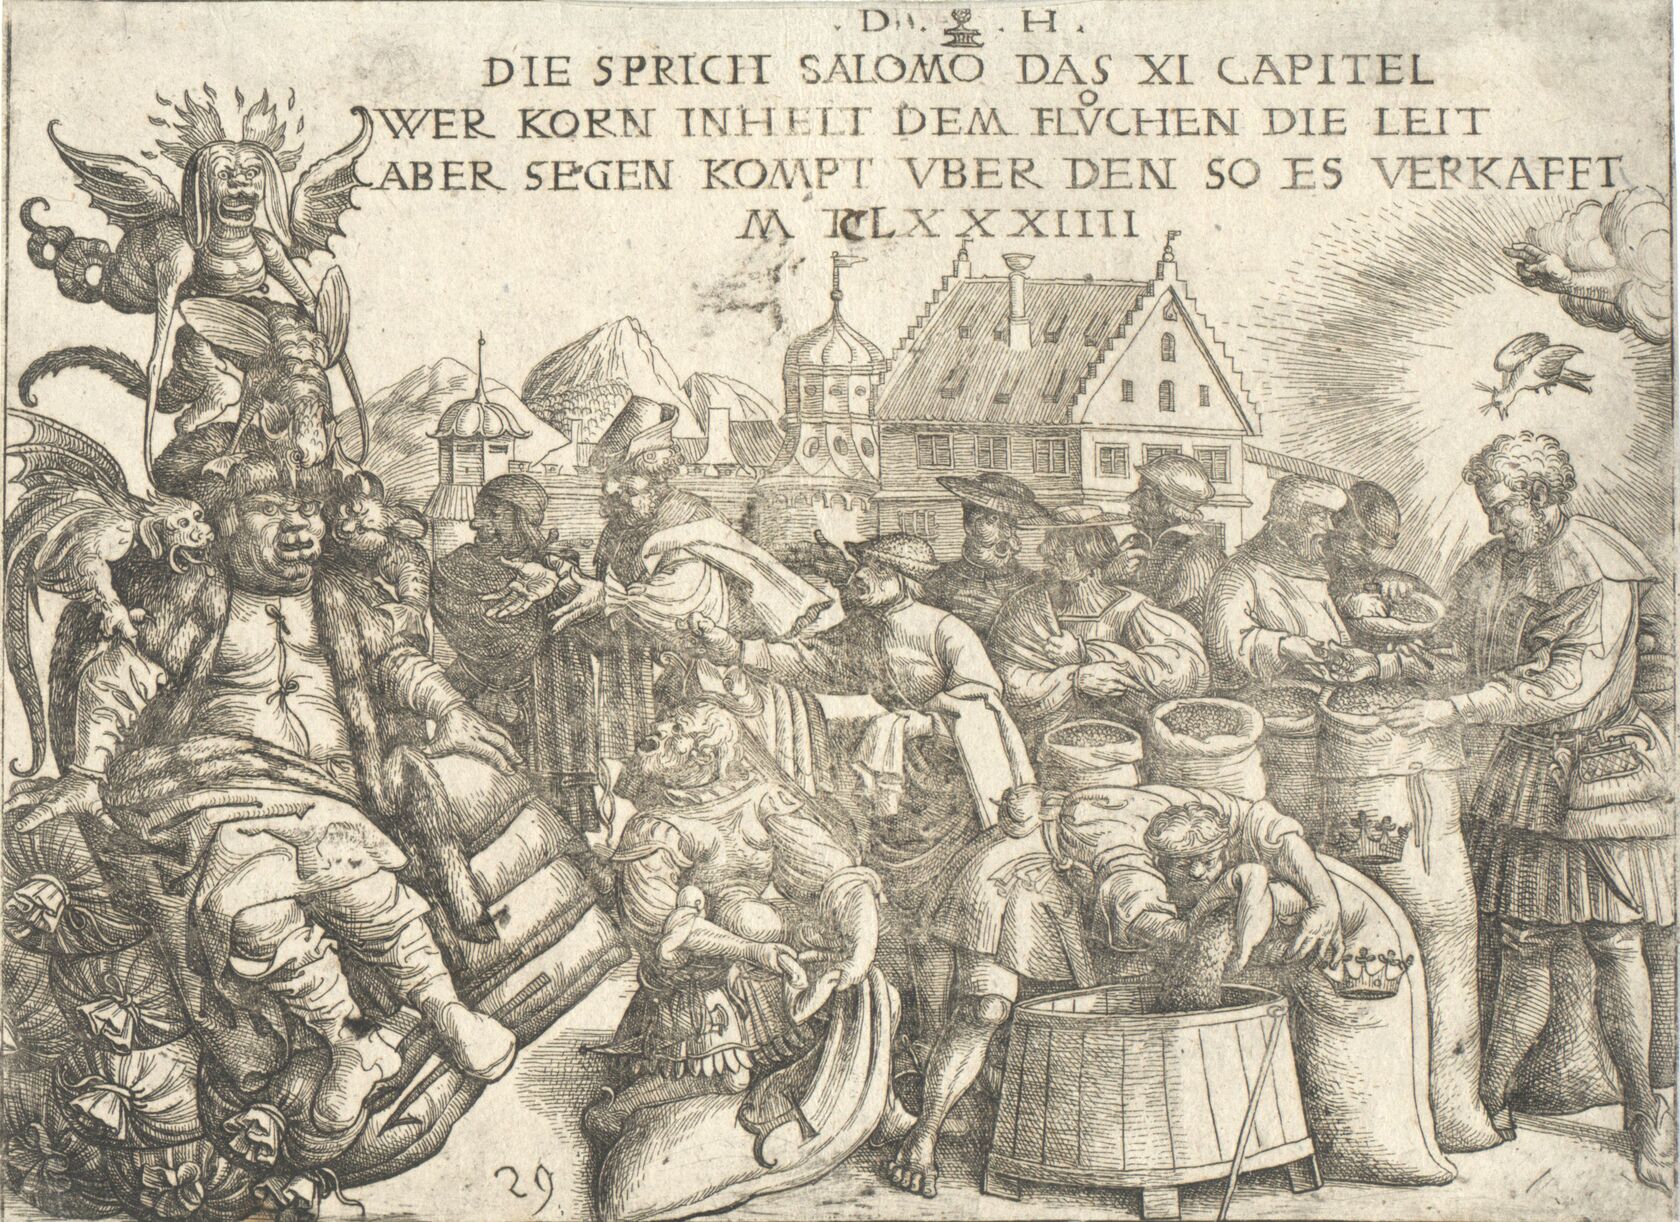 . D . . H .
DIE SPRICH SALOMO DAS XI CAPITEL
WER KORN INHELT DEM FLŮCHEN DIE LEIT
ABER SEGEN KOMPT VBER DEN SO ES VERKAFFT
LXXXIIIII
29